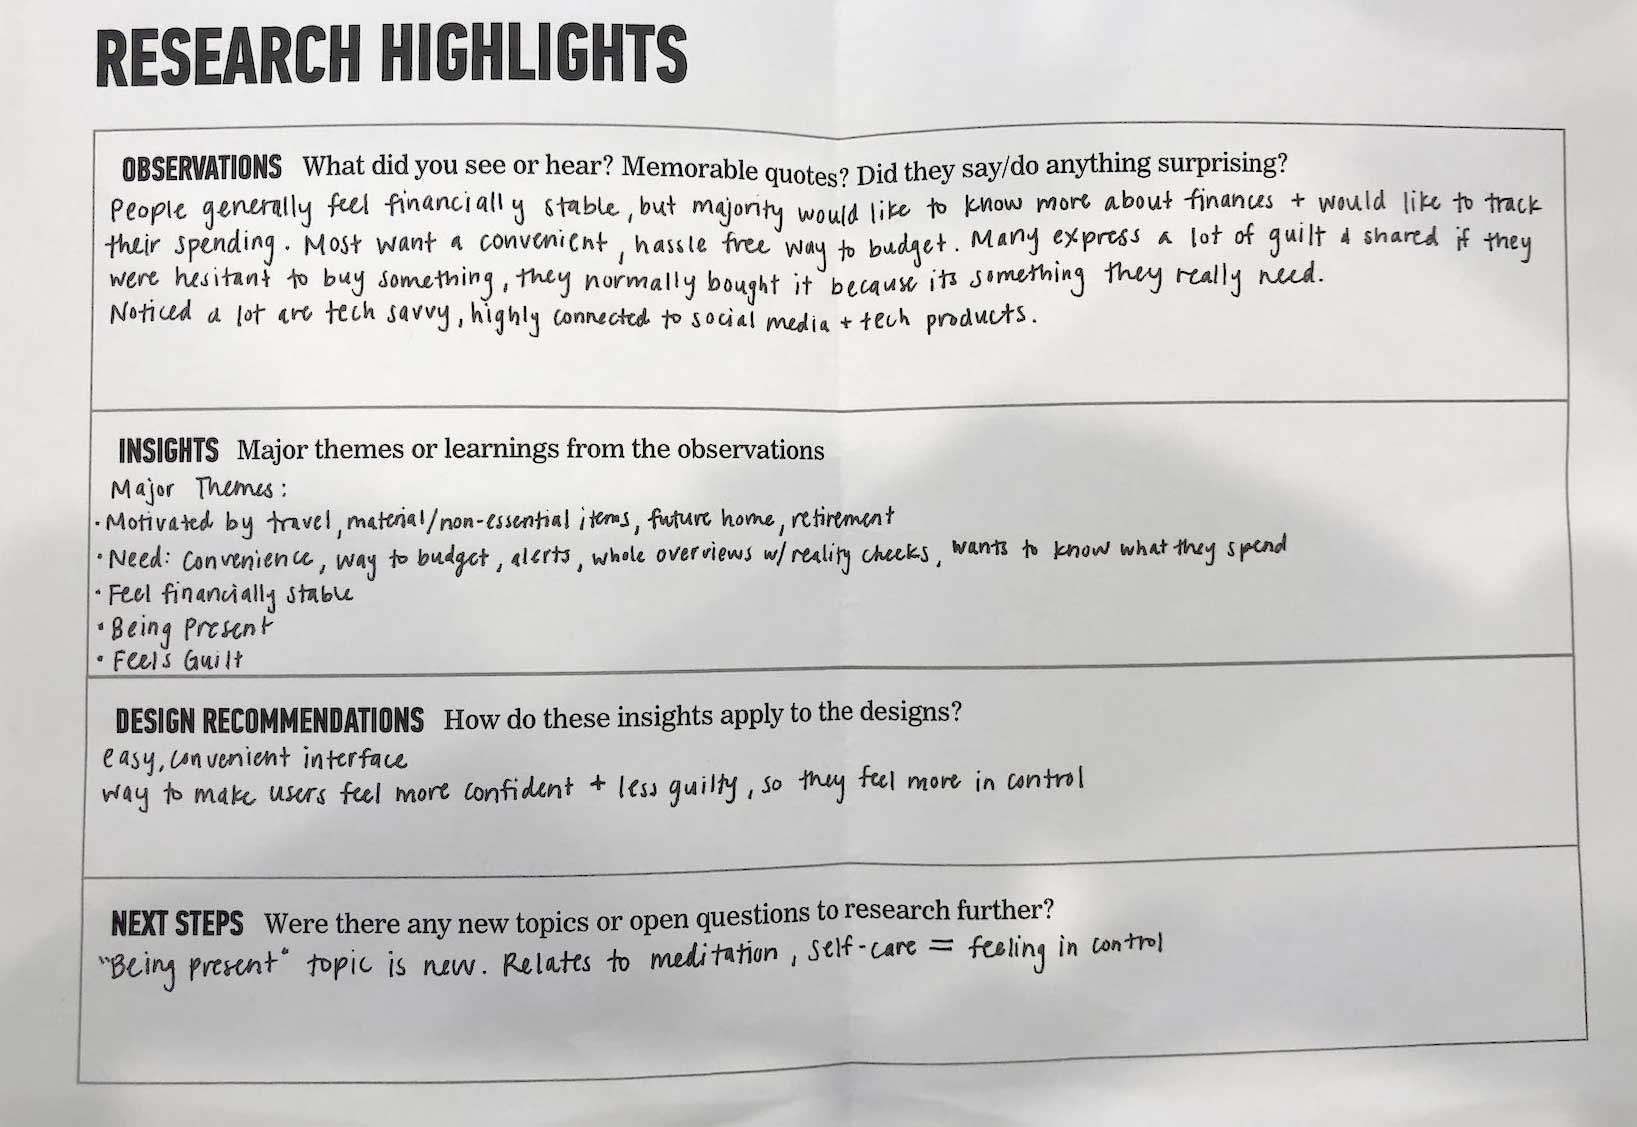 RESEARCH HIGHLIGHTS
OBSERVATIONS What did you see or hear? Memorable quotes? Did they say/do anything surprising?
People generally feel financially stable, but majority would like to know more about finances + would like to track
their spending. Most want a convenient, hassle free way to budget. Many express a lot of guilt & shared if they
were hesitant to buy something, they normally bought it because its something they really need.
Noticed a lot are tech savvy, highly connected to social media + tech products.
INSIGHTS Major themes or learnings from the observations
Major Themes:
• Motivated by travel, material/non-essential items, future home, retirement
• Need: Convenience, way to budget, alerts, whole overviews w/reality checks, wants to know what they spend
• Feel financially stable
• Being Present
• Feels Guilt
DESIGN RECOMMENDATIONS How do these insights apply to the designs?
easy, convenient interface
way to make users feel more confident + less guilty, so they feel more in control
NEXT STEPS Were there any new topics or open questions to research further?
"Being present" topic is new. Relates to meditation, self-care = feeling in control